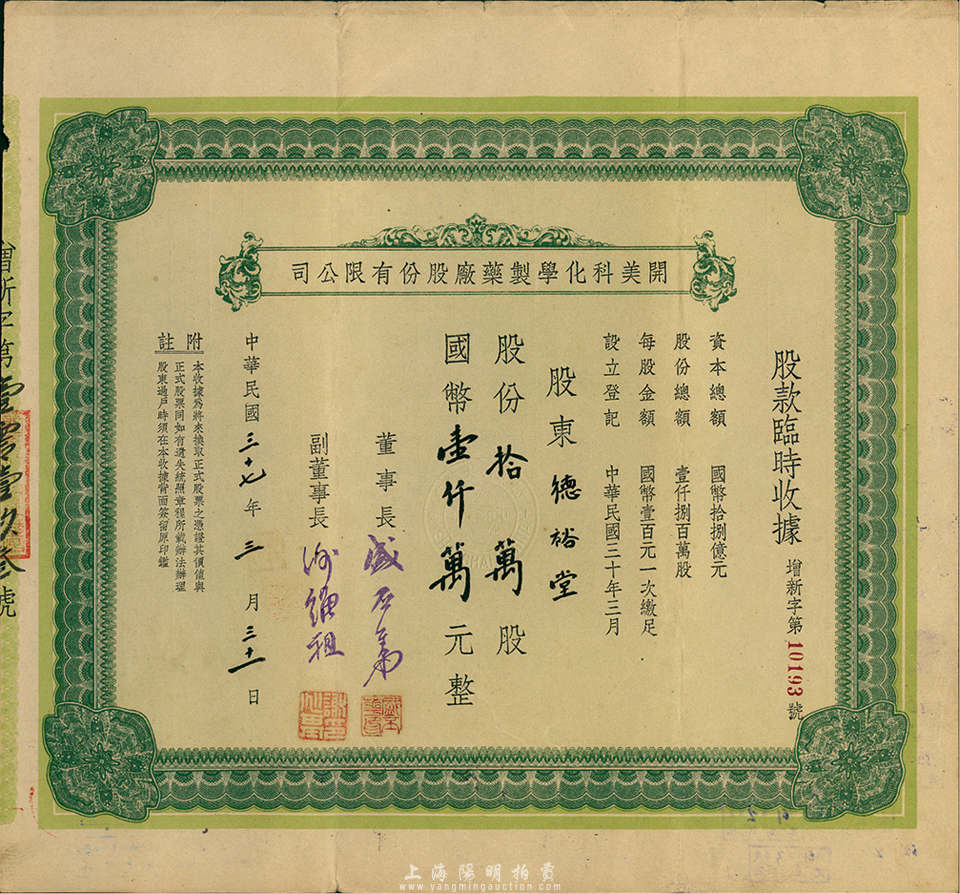 開美科化學製藥廠股份有限公司
股款臨時收據 增新字第10193號
資本總額 國幣拾捌億元
股份總額 壹仟捌百萬股
每股金額 國幣壹百元一次繳足
設立登記 中華民國三十年三月
股東德裕堂
股份拾萬股
國幣壹仟萬元整
董事長
副董事長
中華民國三十七年三月三十一日
附註
本收據為將來換取正式股票之憑證其價值與
正式股票同如有遺失統照章程所載辦法辦理
股東過戶時須在本收據背面簽留原印鑑
增新字第壹零壹玖叁號
上海陽明拍賣
www.yangmingauction.com